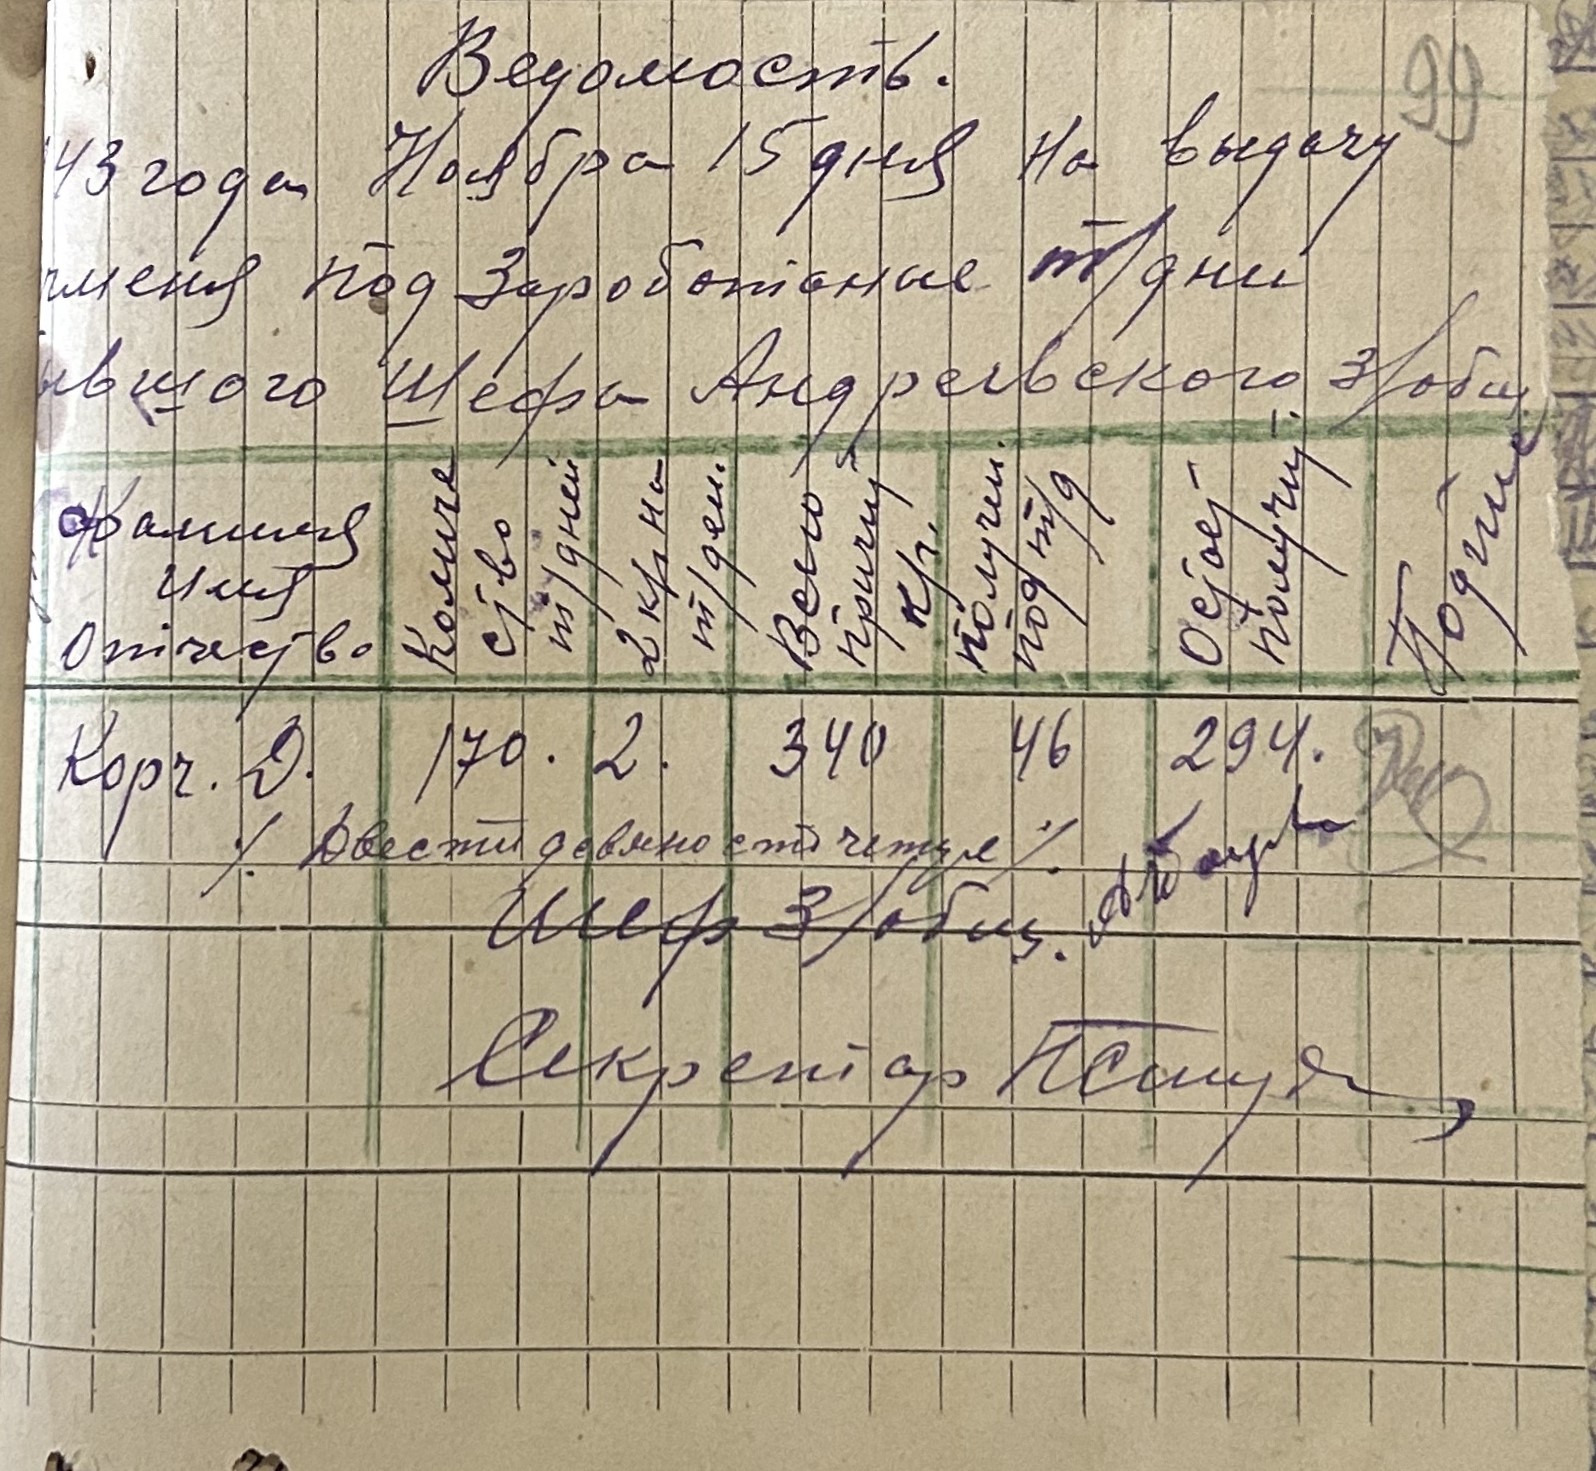 99
Ведомость.
43 года Ноября 15 дня на выдачу
чменя под Заработаные т/дни
ывшого Шефа Андреевского з/общ.
Фамилия
Имя
Отчество
Количе
ство
т/дней
2 кг на
т/ден.
Всего
причит
кг.
Получен.
под т/д
Остает
получит
Подпис
Корч. Д. 170. 2. 340 46 294.
·/. Двести девяносто четыре ·/.
Шеф З/общ.
Секретар